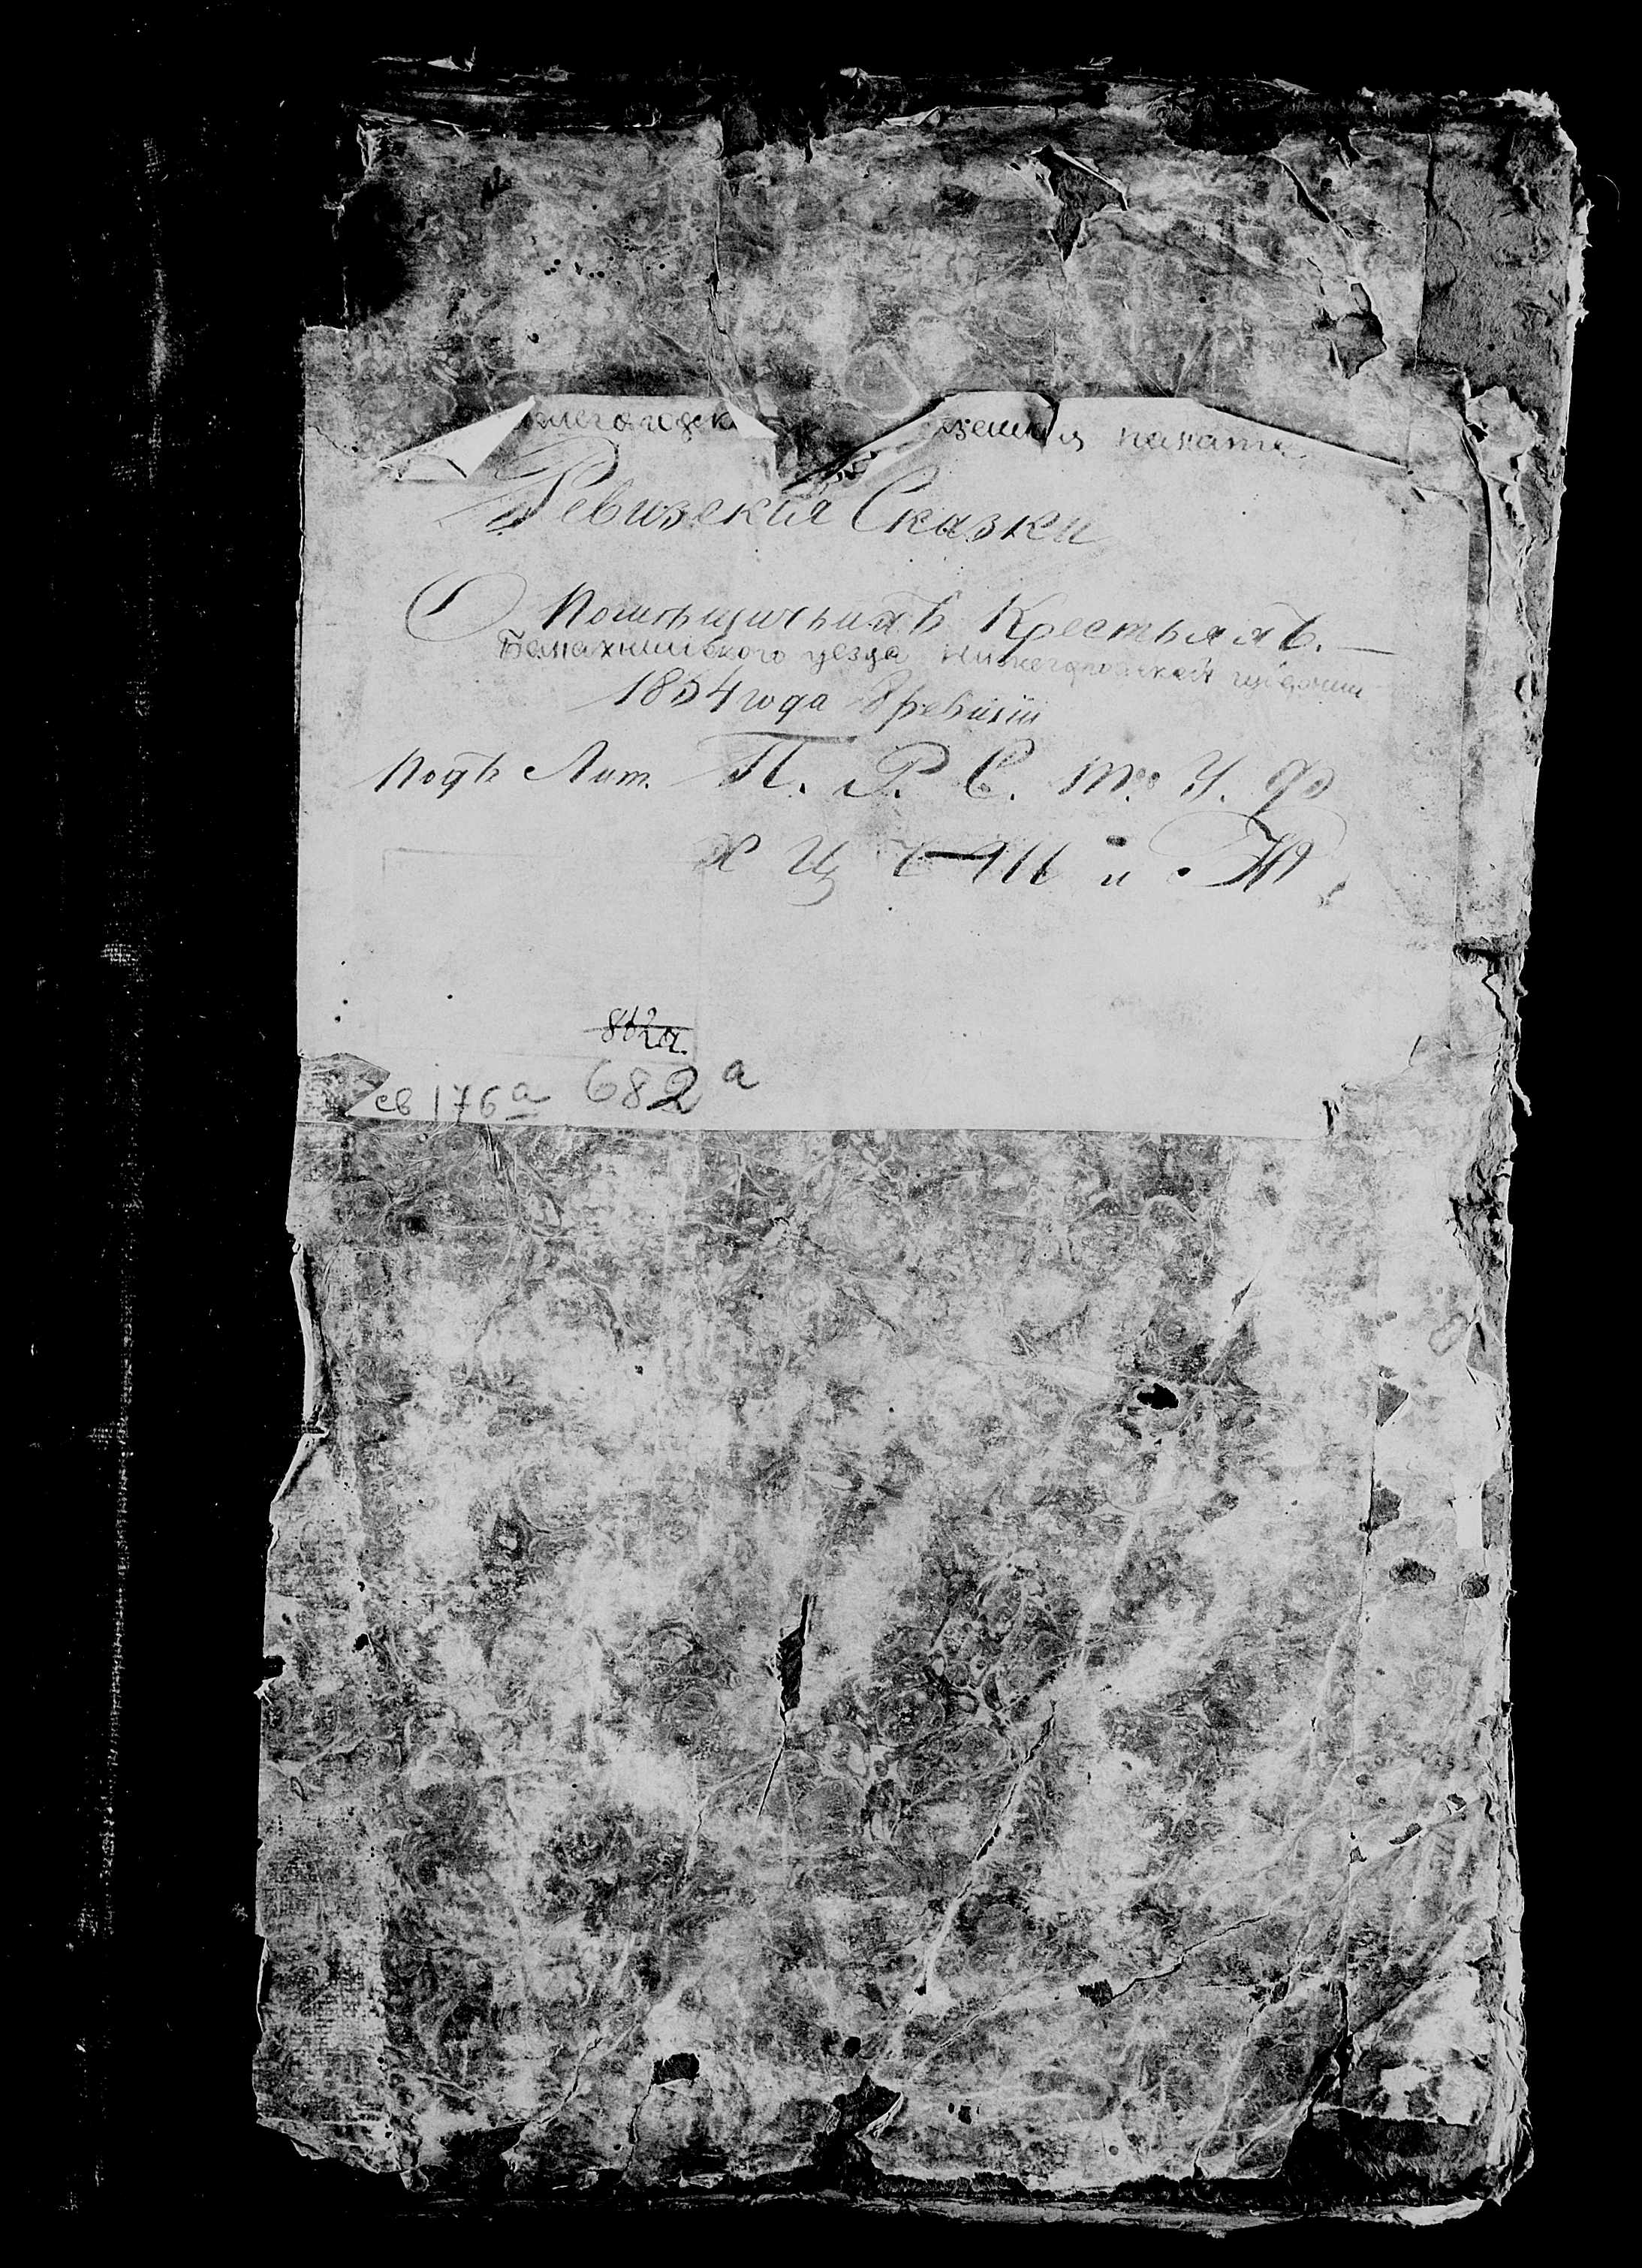 жегородск казенная палата
Ревизскія Сказки
О Помѣщичьихъ Крестьянахъ. —
Балахнинского уезда Нижегородской губернии
1854 года 8 ревизіи
подъ Лит. П. Р. С. Т. У. Ф
Х Ц Ч Ш и Ю
862а.
св 176а 682а